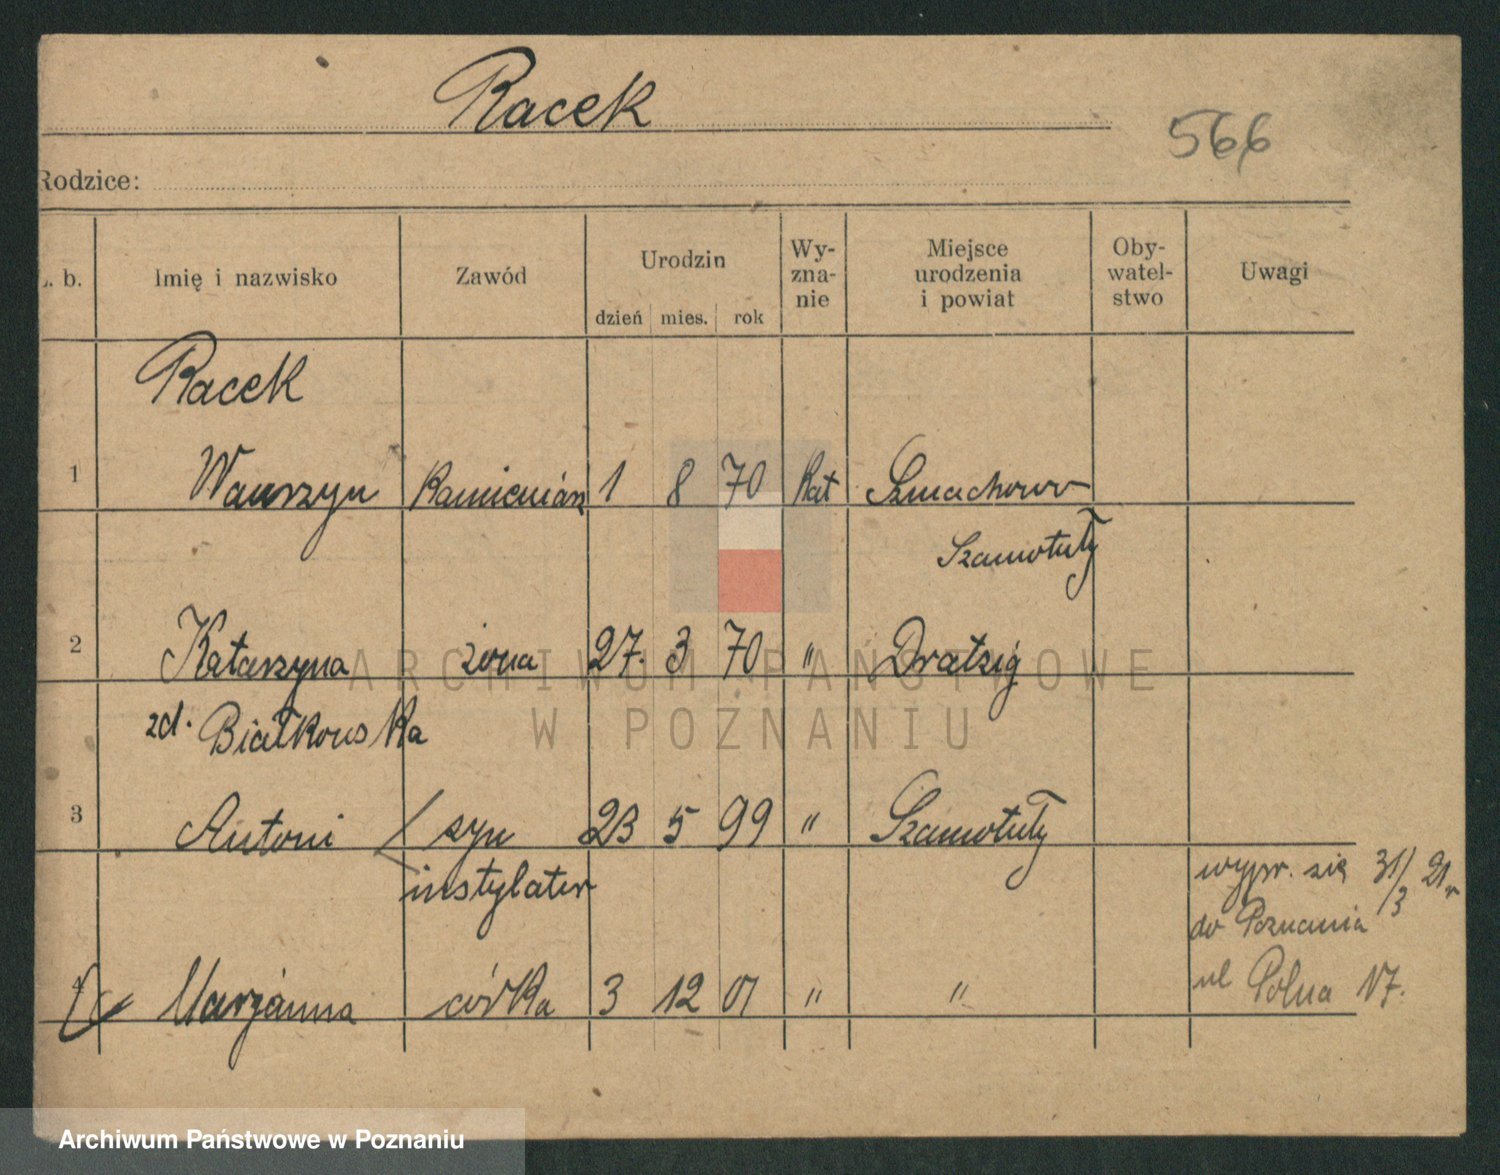 Racek
566
Rodzice:
L. b. Imię i nazwisko Zawód Urodzin dzień mies. rok Wyznanie Miejsce urodzenia i powiat Obywatelstwo Uwagi
Racek
1 Wawrzyn Kamieniarz 1 8 70 Kat Szmachowo
Szamotuły
2 Katarzyna żona 27. 3 70 " Dratzig
zd. Białkowska
3 Antoni syn 23 5 99 " Szamotuły
instylator
wypr. się 31/3 21 r
do Poznania
ul Polna 17.
4 Marjanna córka 3 12 01 " "
ARCHIWUM PAŃSTWOWE
W POZNANIU
Archiwum Państwowe w Poznaniu